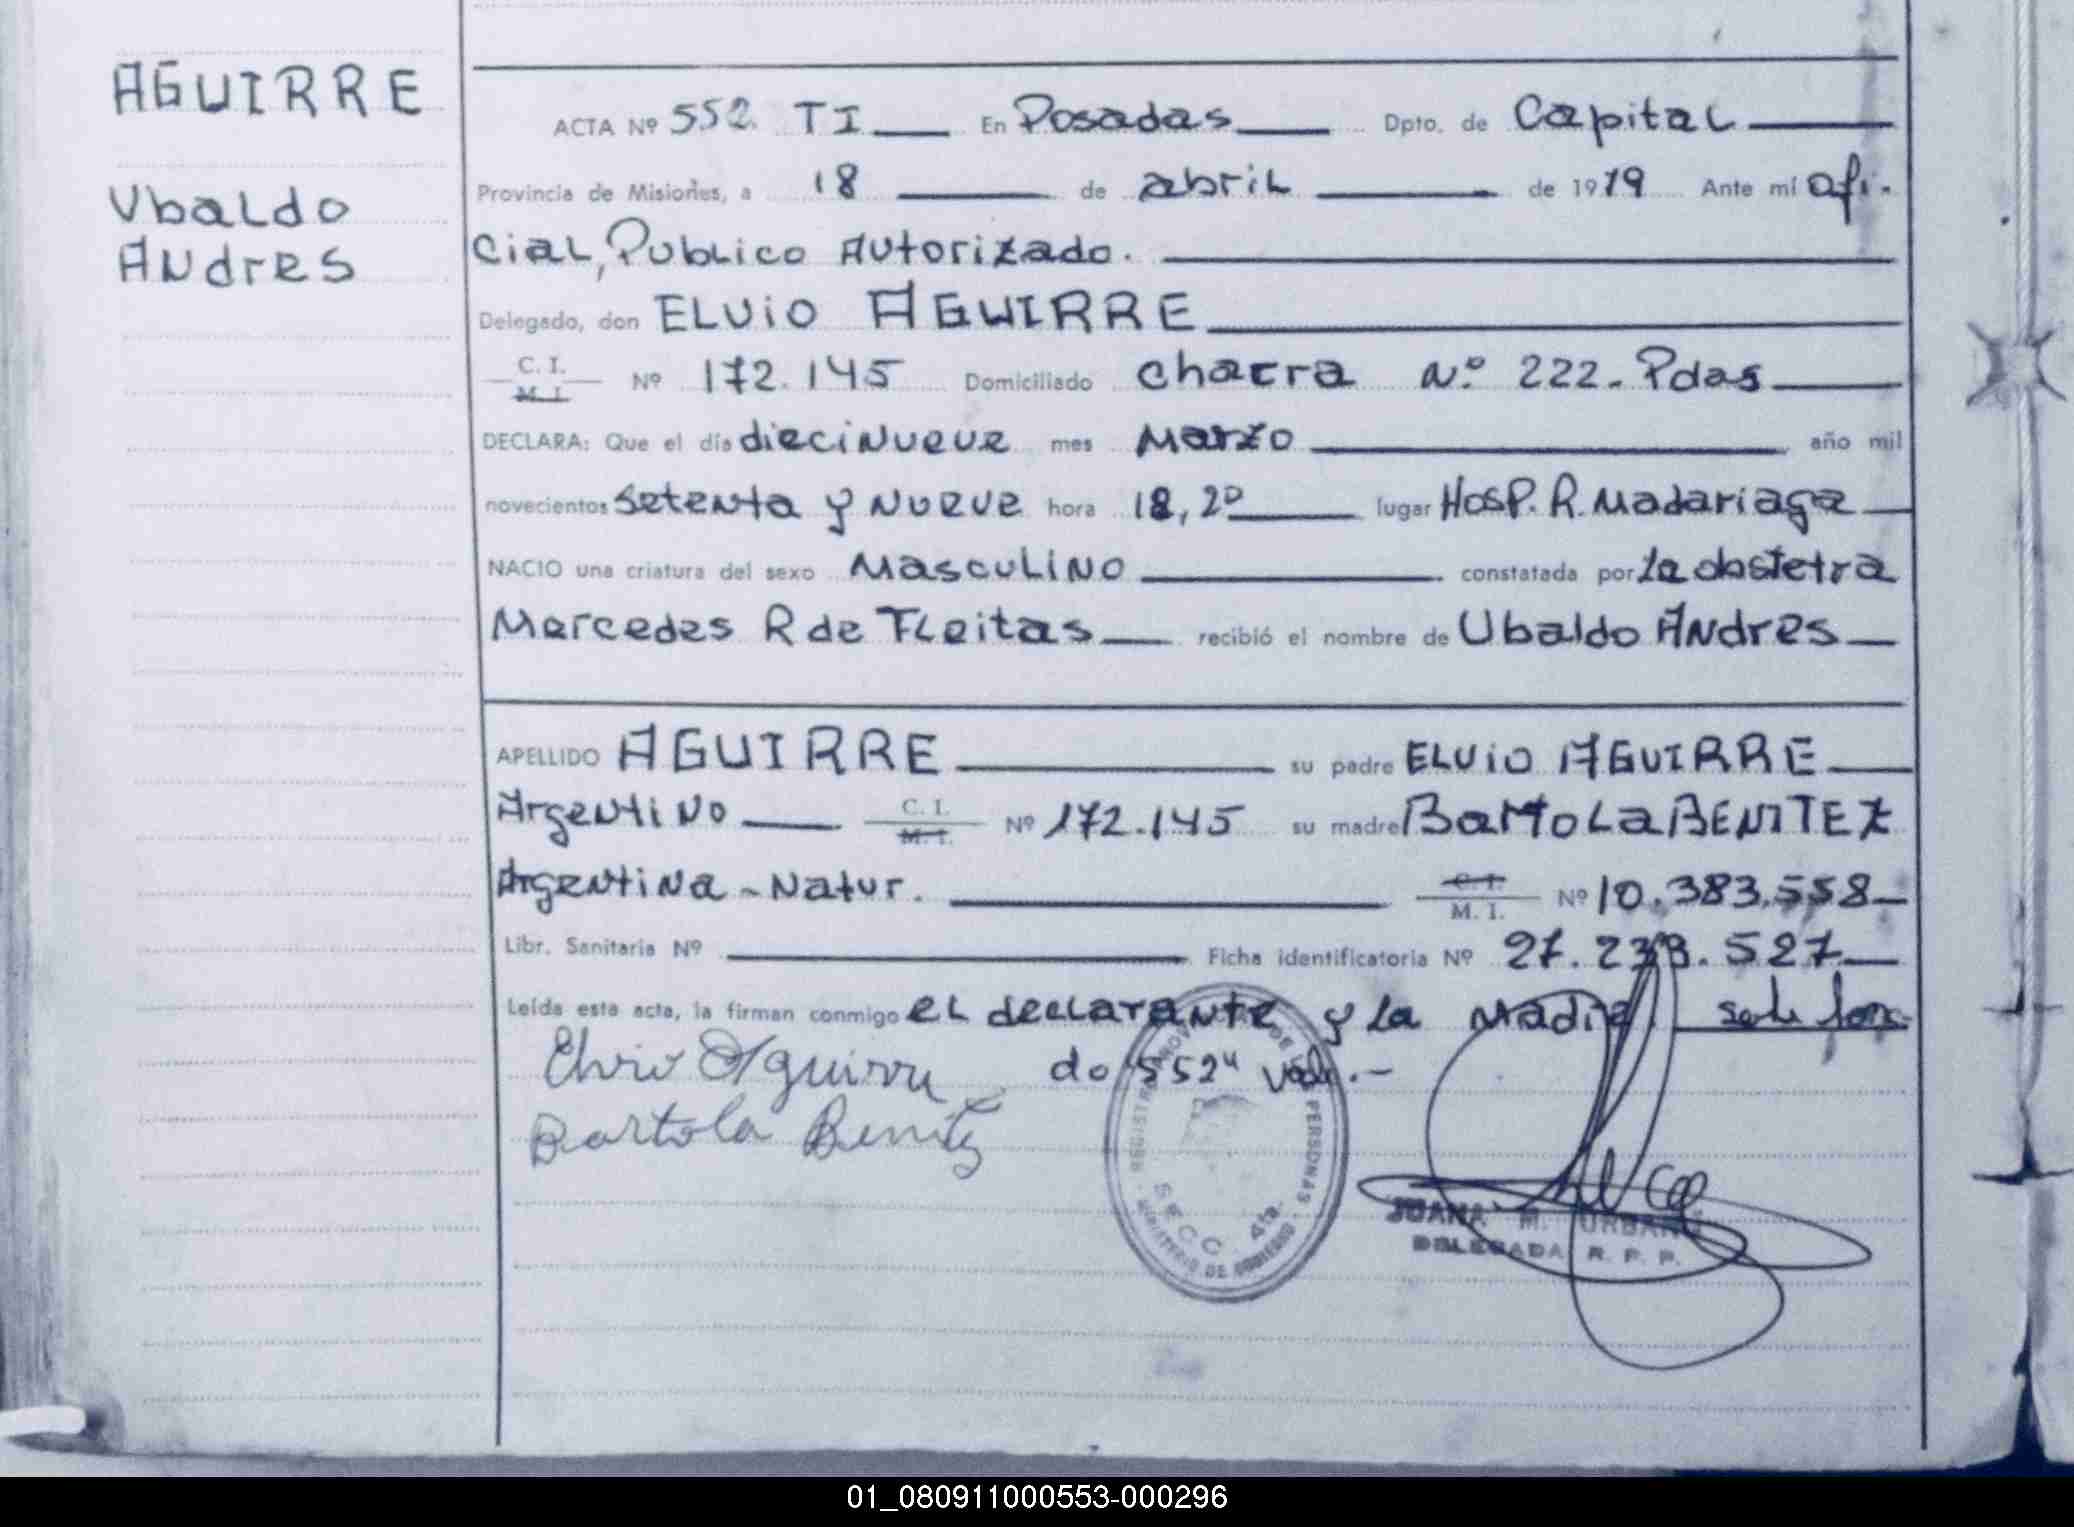 AGUIRRE
Ubaldo
Andres
ACTA Nº 552. TI En Posadas Dpto. de Capital
Provincia de Misiones, a 18 de abril de 1979 Ante mí ofi.
cial, Publico Autorizado.
Delegado, don ELVIO AGUIRRE
C. I. M. I. Nº 172.145 Domiciliado chacra N.º 222. Pdas
DECLARA: Que el día diecinueve mes Marzo año mil
novecientos setenta y nueve hora 18,20 lugar Hosp. R. Madariaga
NACIO una criatura del sexo Masculino constatada por la obstetra
Mercedes R de Fleitas recibió el nombre de Ubaldo Andres
APELLIDO AGUIRRE su padre ELVIO AGUIRRE
Argentino C. I. M. I. Nº 172.145 su madre Bartola BENITEZ
Argentina - Natur. C. I. M. I. Nº 10.383.558
Libr. Sanitaria Nº Ficha identificatoria Nº 27.233.527
Leída esta acta, la firman conmigo el declarante y la Madre
do 552" Vale.-
Elvio Aguirre
Bartola Benitez
REGISTRO PROV DE LAS PERSONAS
SECC. 4ta.
MINISTERIO DE GOBIERNO
JUANA M. URBANO
DELEGADA R. P. P.
01_080911000553-000296